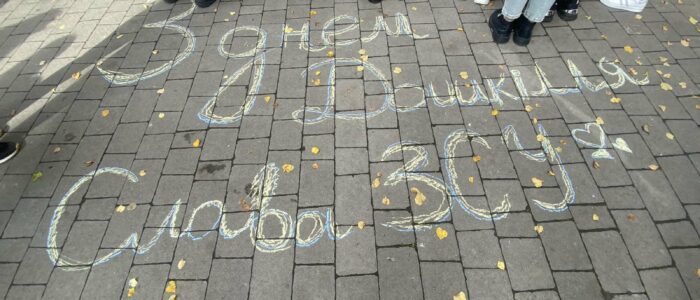 З днем Дошкілля
Слава ЗСУ